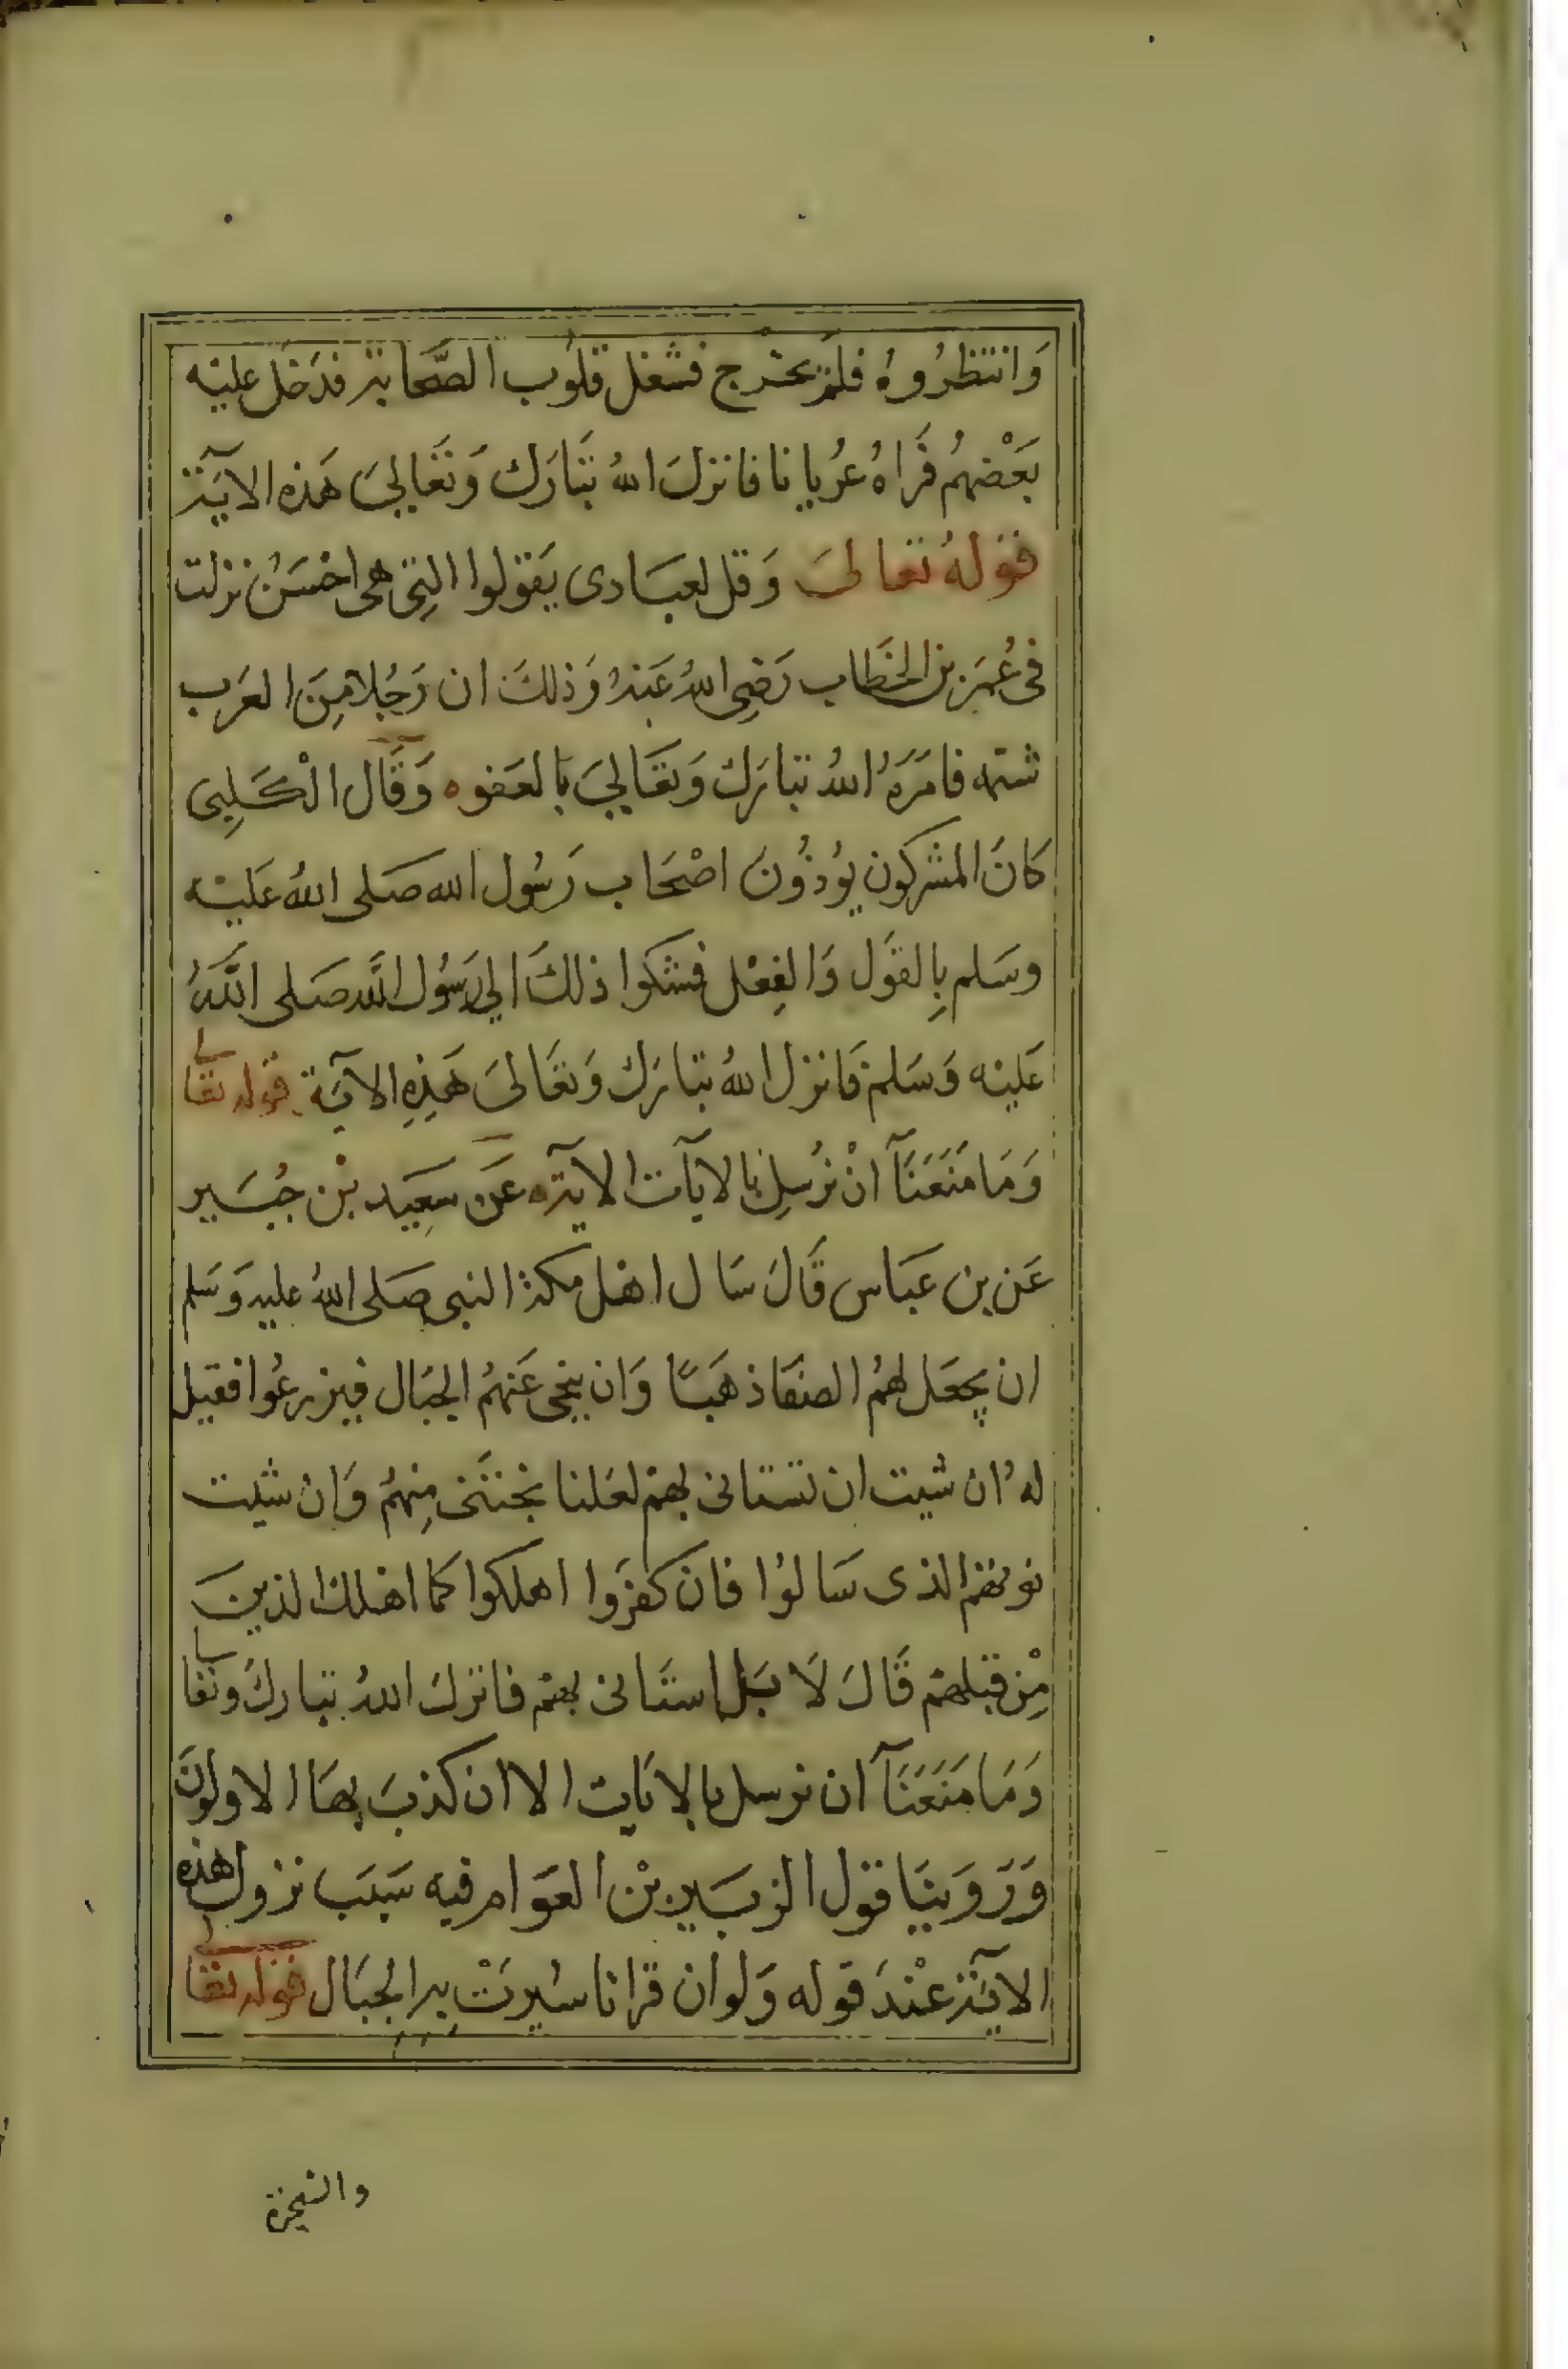 وَانتظرُوهُ فلَم يخرج فشغل قلُوب الصَّحابة فدَخَل عليْه
بَعْضهُم فَراهُ عرُيانا فانزلَ اللهُ تبَارَك وَتعَاليَ هَذه الايَة
قولهُ تعالىَ وَقل لعبَادى يَقولوا التِى هى احْسَنُ نزلت
فى عُمَر بن الخَطاب رَضِى اللهُ عَنهُ وَذلكَ ان رَجُلا مِنَ العَرَب
شتمه فامَرَهُ اللهُ تبارَك وَتعَاليَ بالعَفوه وَقَال الْكَلبِى
كانَ المشركون يُوذُونَ اصْحَاب رَسُول الله صَلى اللهُ عَليْه
وسَلم بِالقوَل وَالفِعْل فشكوا ذلكَ الي رَسُول اللَّه صَلى اللَّهُ
عَليْه وَسَلم فَانزل اللهُ تبارَك وَتعَالىَ هَذِهِ الايَة قوله تعالى
وَمَا مَنَعَنَآ انْ نرُسِل بالايآت الآية ه عَن سَعِيد بْن جُبَير
عَن بن عَبَاس قَالَ سَال اهْل مكة النبى صَلى اللهُ عليه وَسَلم
ان يجعَل لهُم الصفا ذهَبًا وَان ينحى عَنهُم الجبَال فيزرعُوا فقيل
لهُ ان شيت ان تستانى بهم لعَلنا نجتَنى مِنهُم وَان شيت
نوتهم الذى سَالوُا فانَ كفرَوا اهلكوا كما اهلك الذينَ
مِن قبلهم قَالَ لَا بَل استَانى بهم فانزلَ اللهُ تبارَك وتعالى
وَمَا مَنَعَنَآ ان نرسل بالايَات الا ان كذبَ بهَا الاولونَ
وَرَوَينَا قول الزبَير بْن العَوام فيه سَبَب نزول هذه
الايَة عنْدَ قوله وَلو ان قرانا سُيرتْ به الجبَال قوله تعالى
والشجرة